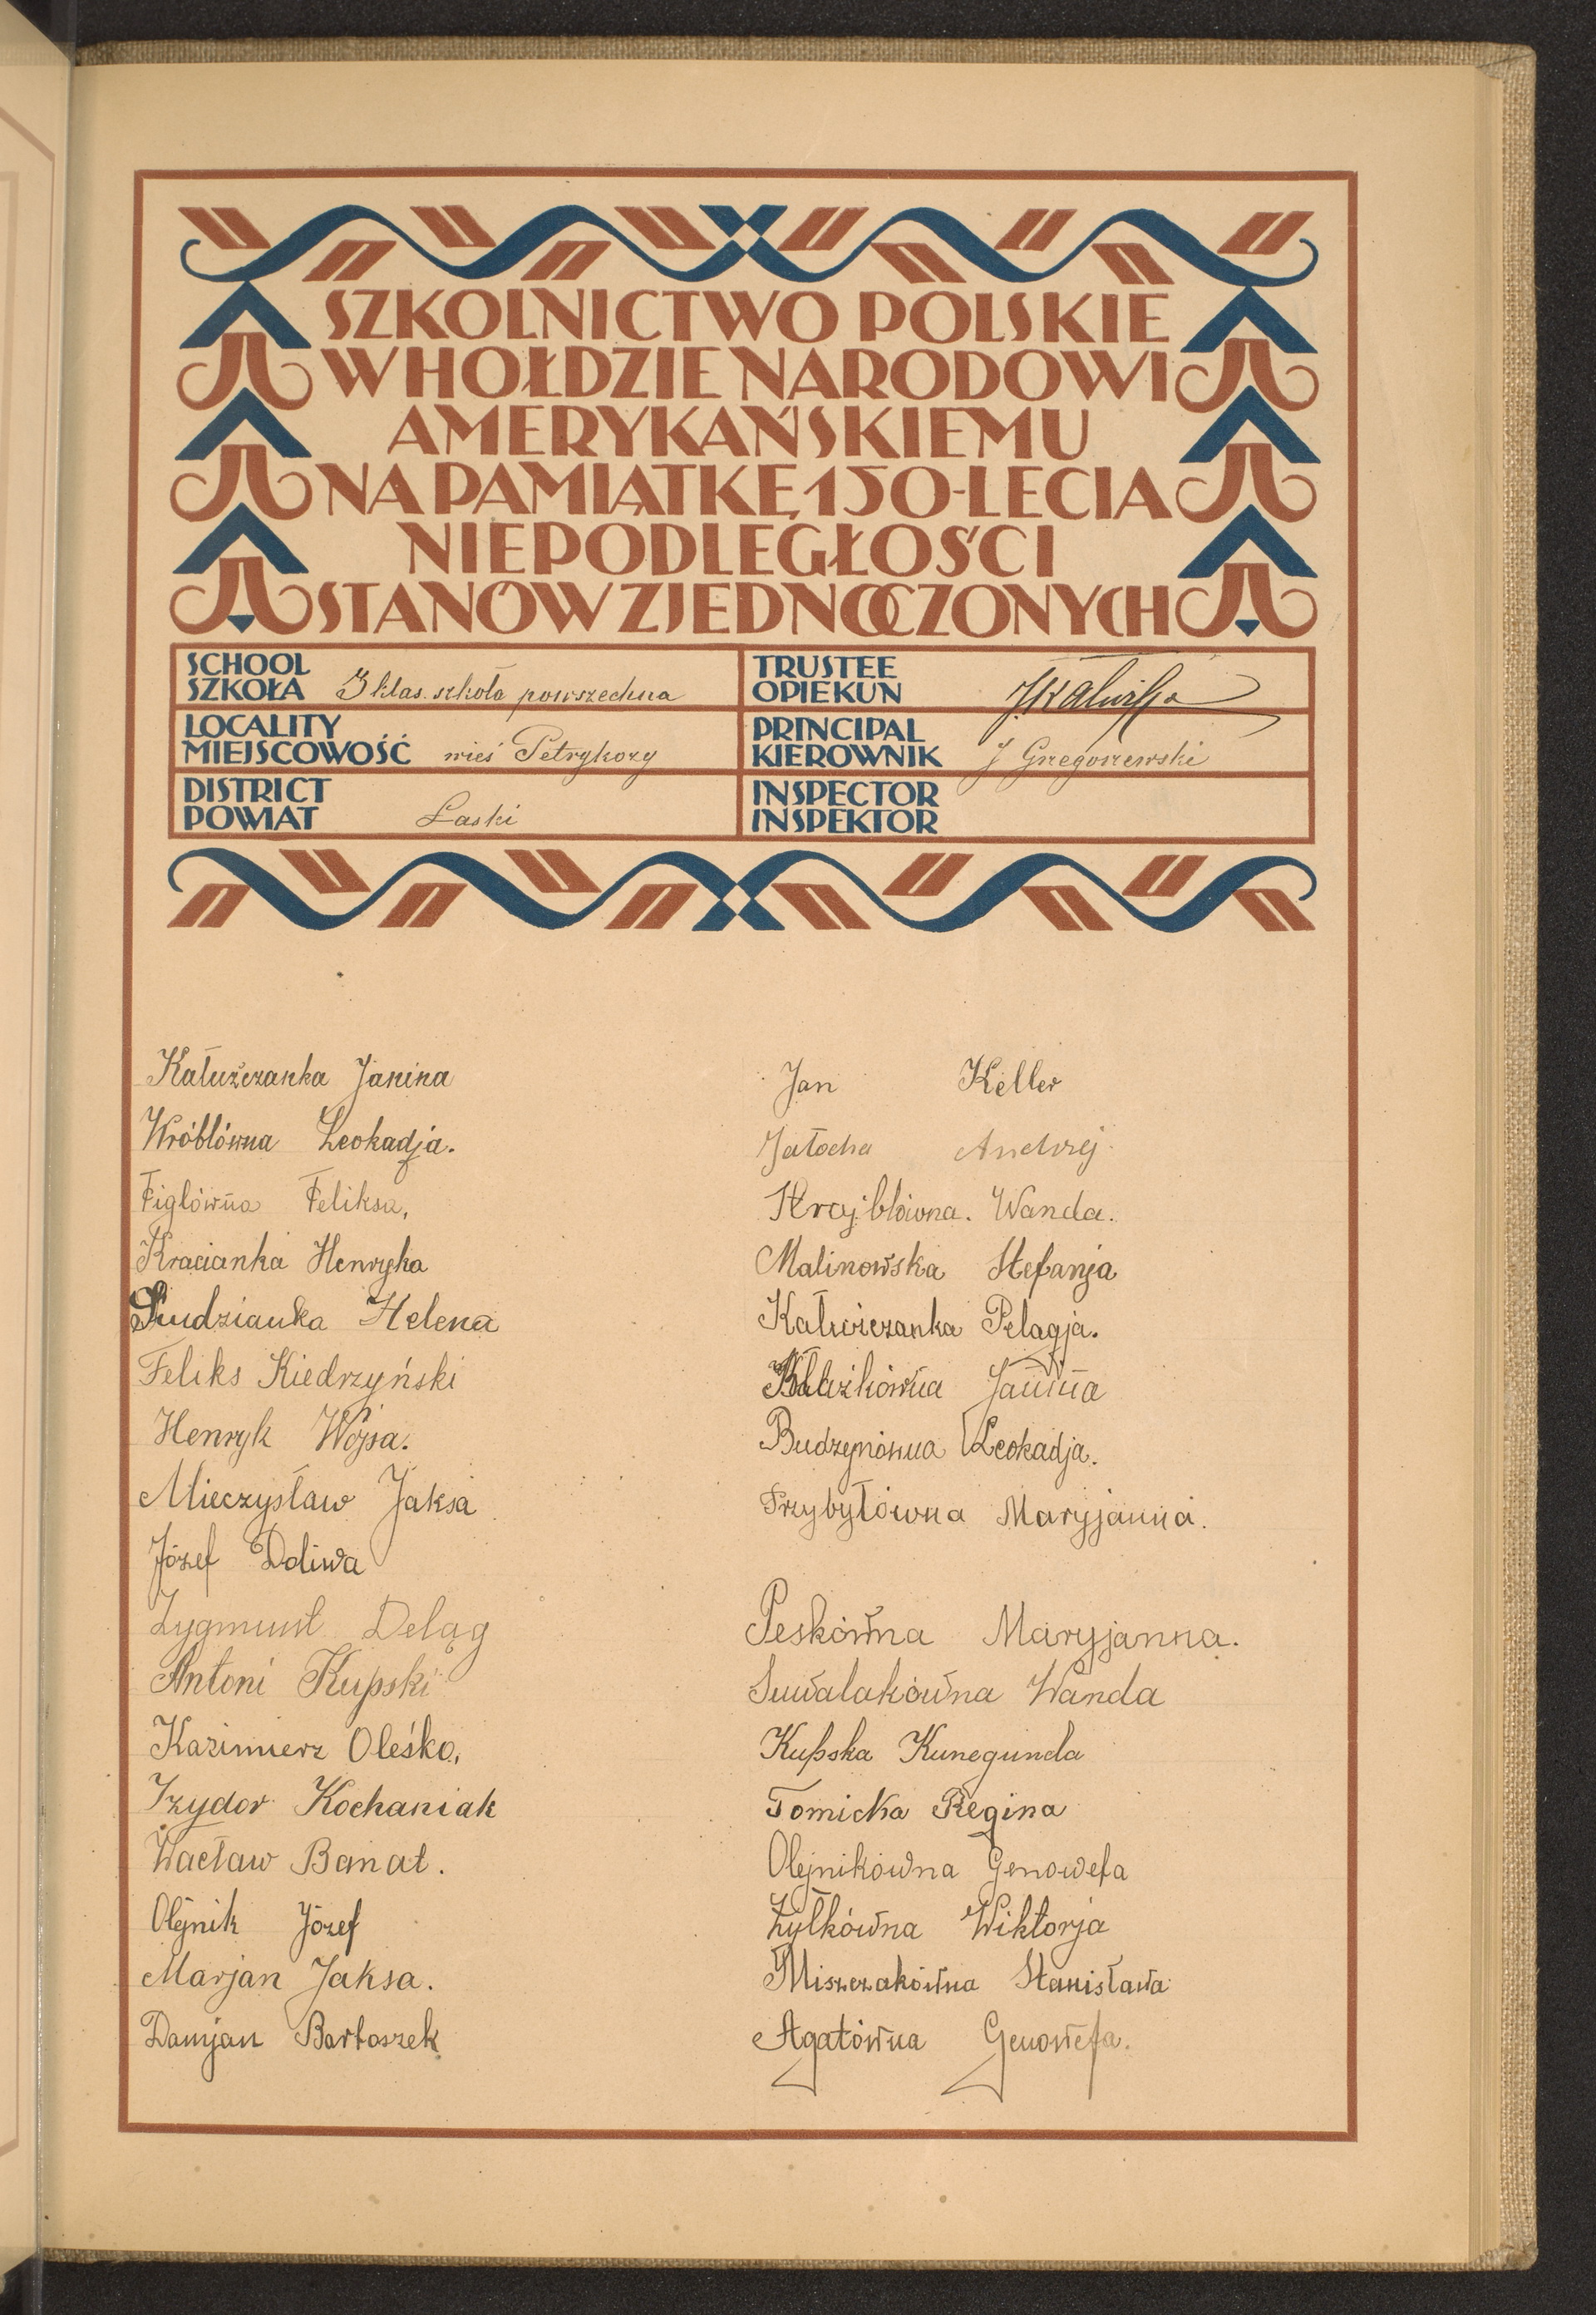 SZKOLNICTWO POLSKIE
W HOŁDZIE NARODOWI
AMERYKAŃSKIEMU
NA PAMIĄTKĘ 150-LECIA
NIEPODLEGŁOŚCI
STANÓW ZJEDNOCZONYCH
SCHOOL
SZKOŁA 3 klas. szkoła powszechna
TRUSTEE
OPIEKUN
LOCALITY
MIEJSCOWOŚĆ wieś Petrykozy
PRINCIPAL
KIEROWNIK J Gregorzewski
DISTRICT
POWIAT Łaski
INSPECTOR
INSPEKTOR
Kałużczanka Janina
Wróblówna Leokadja.
Figlówna Feliksa,
Kracianka Henryka
Helena
Feliks Kiedrzyński
Henryk Wójsa.
Mieczysław Jaksa
Józef Doliwa
Zygmunt Deląg
Antoni Kupski
Kazimierz Oleśko,
Izydor Kochaniak
Wacław Banat.
Olejnik Józef
Marjan Jaksa.
Damjan Bartoszek
Jan Keller
Jałocha Andrzej
Wanda.
Malinowska Stefanja
Pelagja.
Janina
Budzynówna Leokadja.
Przybyłówna Maryjanna.
Peskówna Maryjanna.
Suwalakówna Wanda
Kupska Kunegunda
Tomicka Regina
Olejnikówna Genowefa
Żyłkówna Wiktorja
Miszczakówna Stanisława
Agatówna Genowefa.